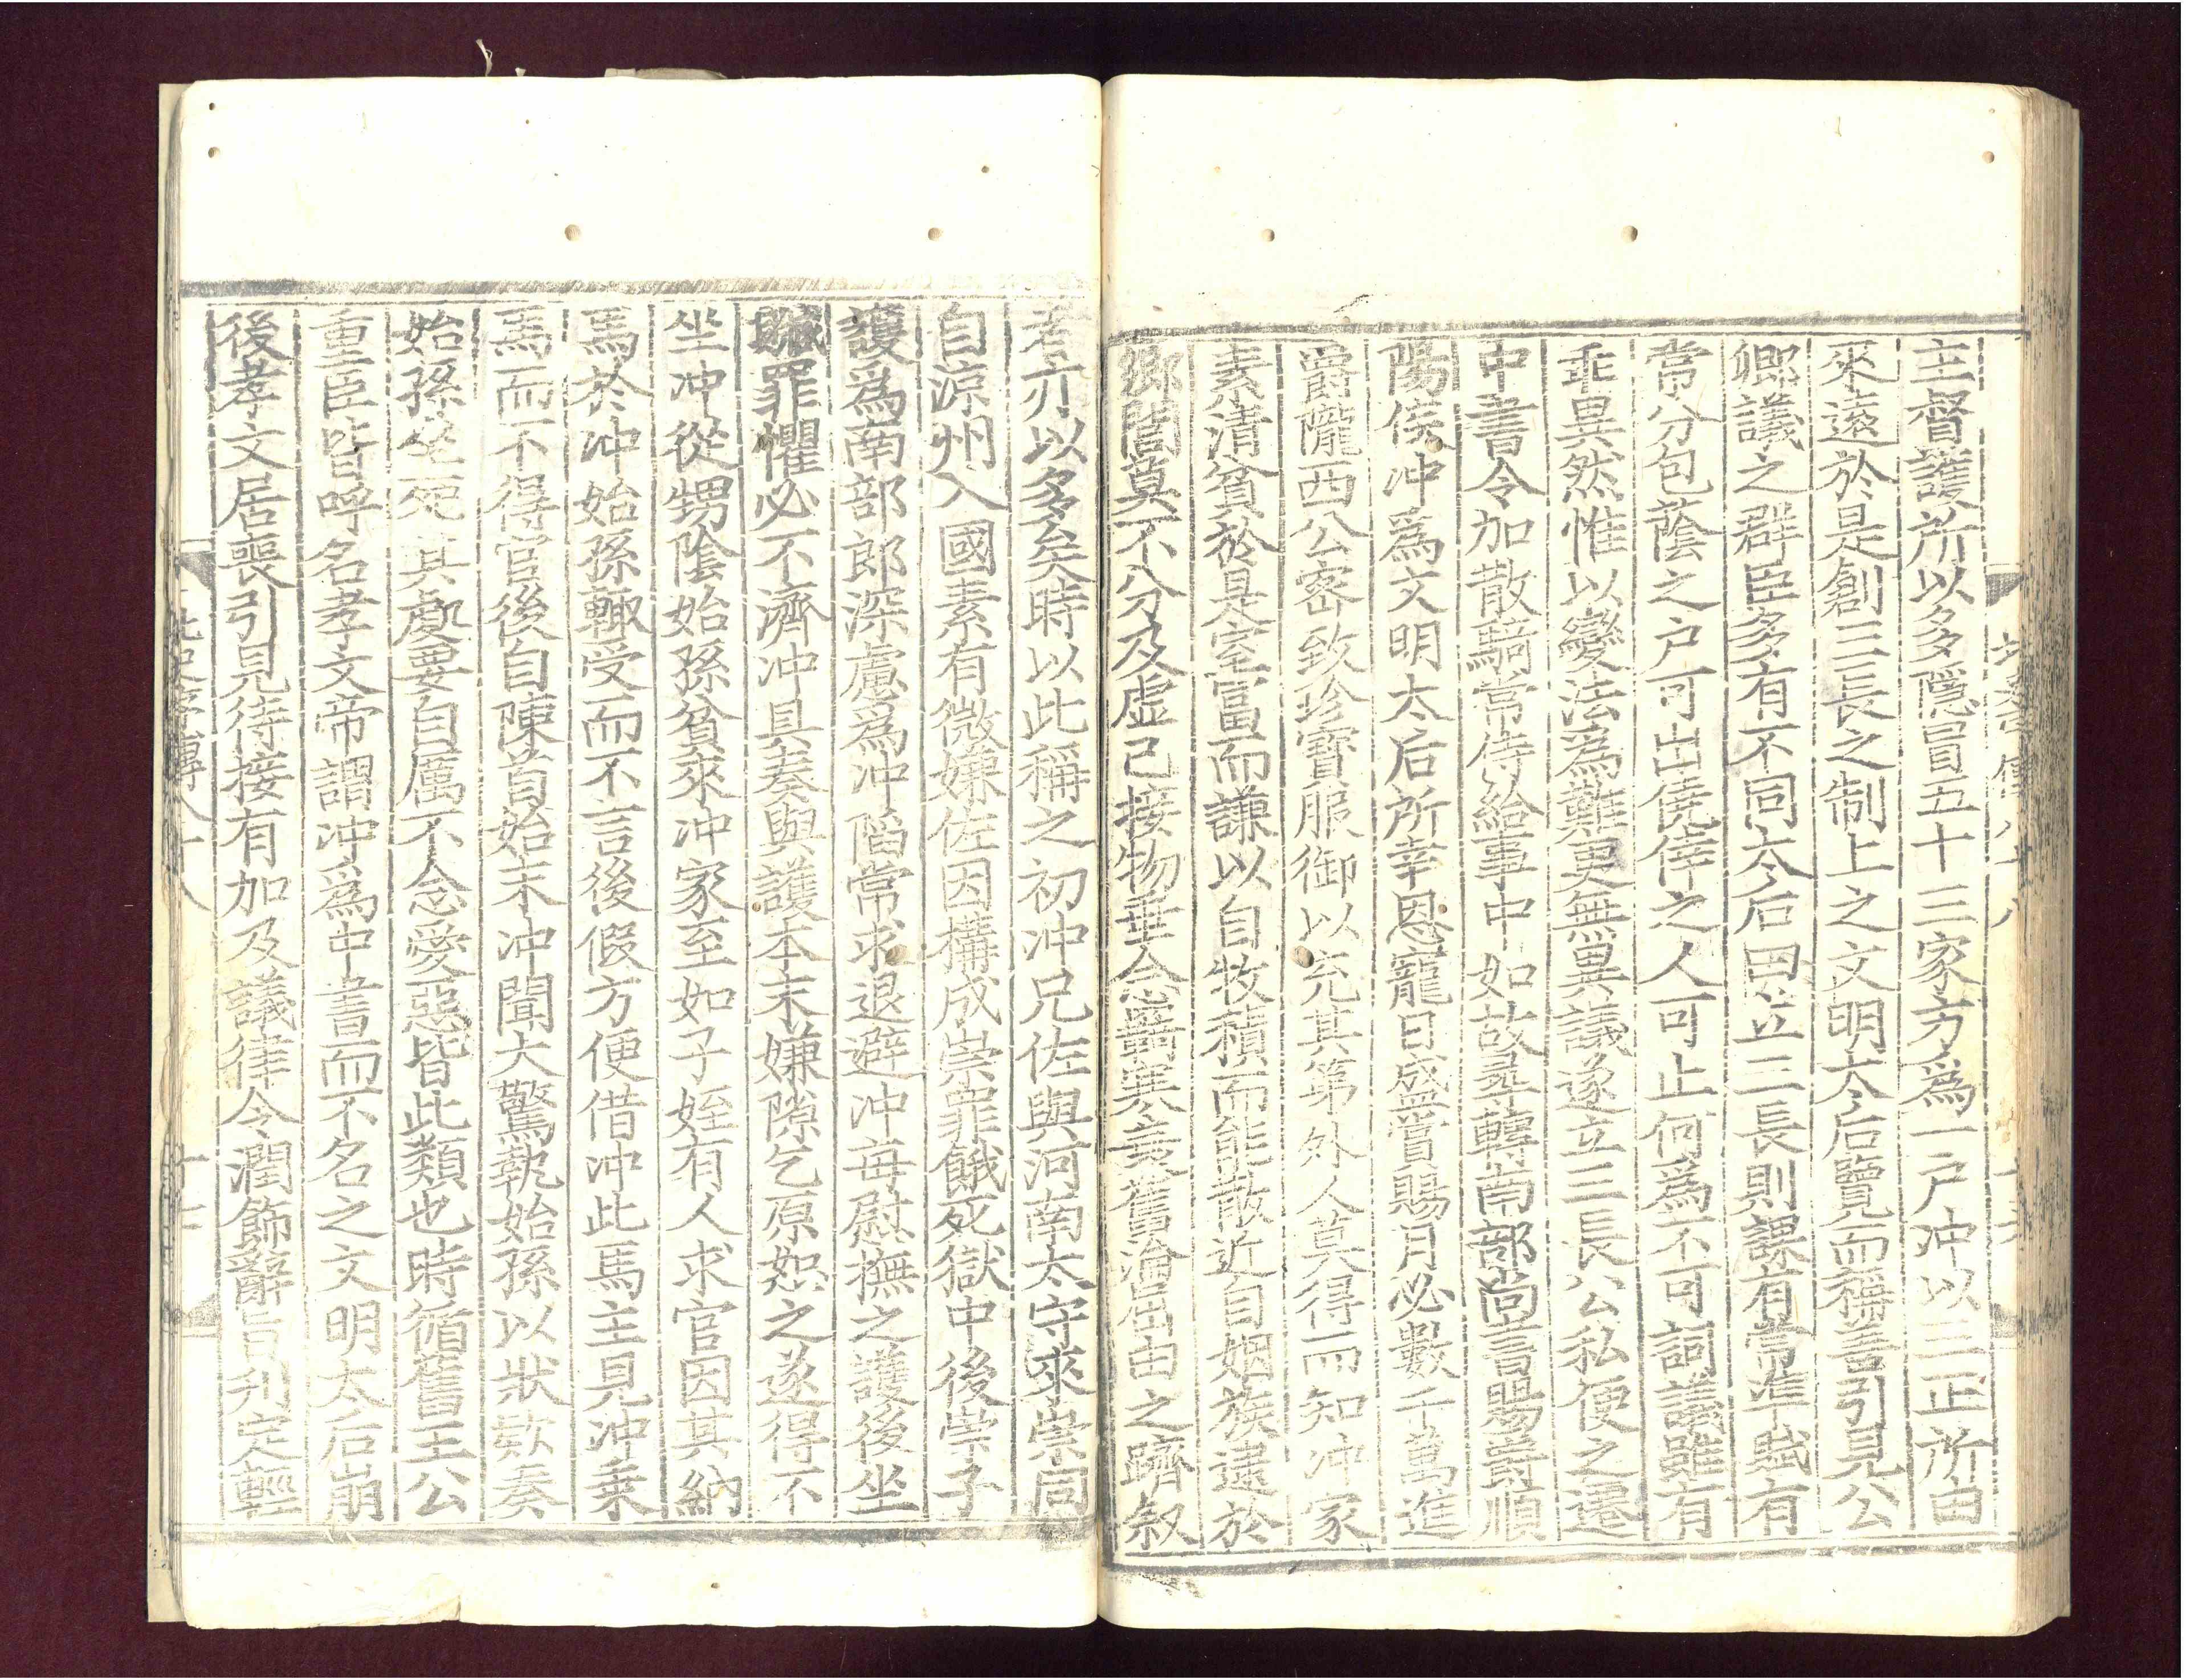 主督護所以多隱冒五十三家方爲一戶冲以三正所由
來遠於是創三長之制上之文明太后覽而稱善引見公
卿議之群臣多有不同太后曰立三長則課有常準賦有
常分包蔭之戶可出僥倖之人可止何爲不可詞議雖有
乖異然惟以變法爲難更無異議遂立三長公私便之還
中書令加散騎常侍給事中如故尋轉南部尚書賜爵順
陽侯冲爲文明太后所幸恩寵日盛賞賜月必數千萬進
爵隴西公密致珍寶服御以充其第外人莫得而知冲家
素清貧於是室富而謙以自牧積而能散近自姻族逮於
鄉閭莫不分及虛己接物垂念羇寒衰舊淪屈由之躋叙
者亦以多矣時以此稱之初冲兄佐與河南太守來崇同
自涼州入國素有微嫌佐因搆成崇罪餓死獄中後崇子
護爲南部郎深慮爲冲陷常求退避冲每慰撫之護後坐
贓罪懼必不濟冲具奏與護本末嫌隙乞原恕之遂得不
坐冲從甥陰始孫貧來冲家至如子姪有人求官因其納
馬於冲始孫輒受而不言後假方便借冲此馬主見冲乘
馬而不得官後自陳首始末冲聞大驚執始孫以狀款奏
始孫坐死其處要自厲不念愛惡皆此類也時循舊王公
重臣皆呼名孝文帝謂冲爲中書而不名之文明太后崩
後孝文居喪引見待接有加及議律令潤飾辭旨刊定輕
北史列傳八十八 十七